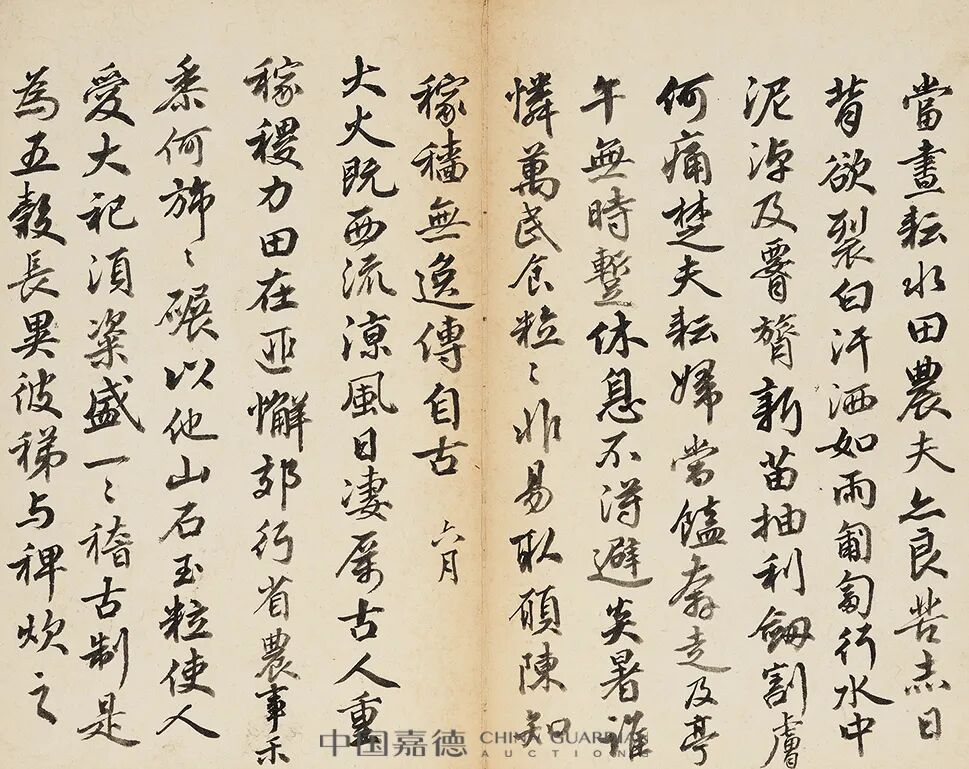 當晝耘水田農夫亦良苦赤日
背欲裂白汗洒如雨匍匐行水中
泥淖及膂新苗抽利劒割膚
何痛楚夫耘婦當饁奔走及亭
午無時暫休息不得避炎暑誰
憐萬民食粒〻非易取願陳知
稼穡無逸傳自古 六月
大火既西流涼風日凄厲古人重
稼稷力田在匪懈郊行省農事禾
黍何旆〻碾以他山石玉粒使人
愛大祀須粢盛一〻稽古制是
為五穀長異彼稊与稗炊之
中国嘉德 CHINA GUARDIAN
AUCTIONS